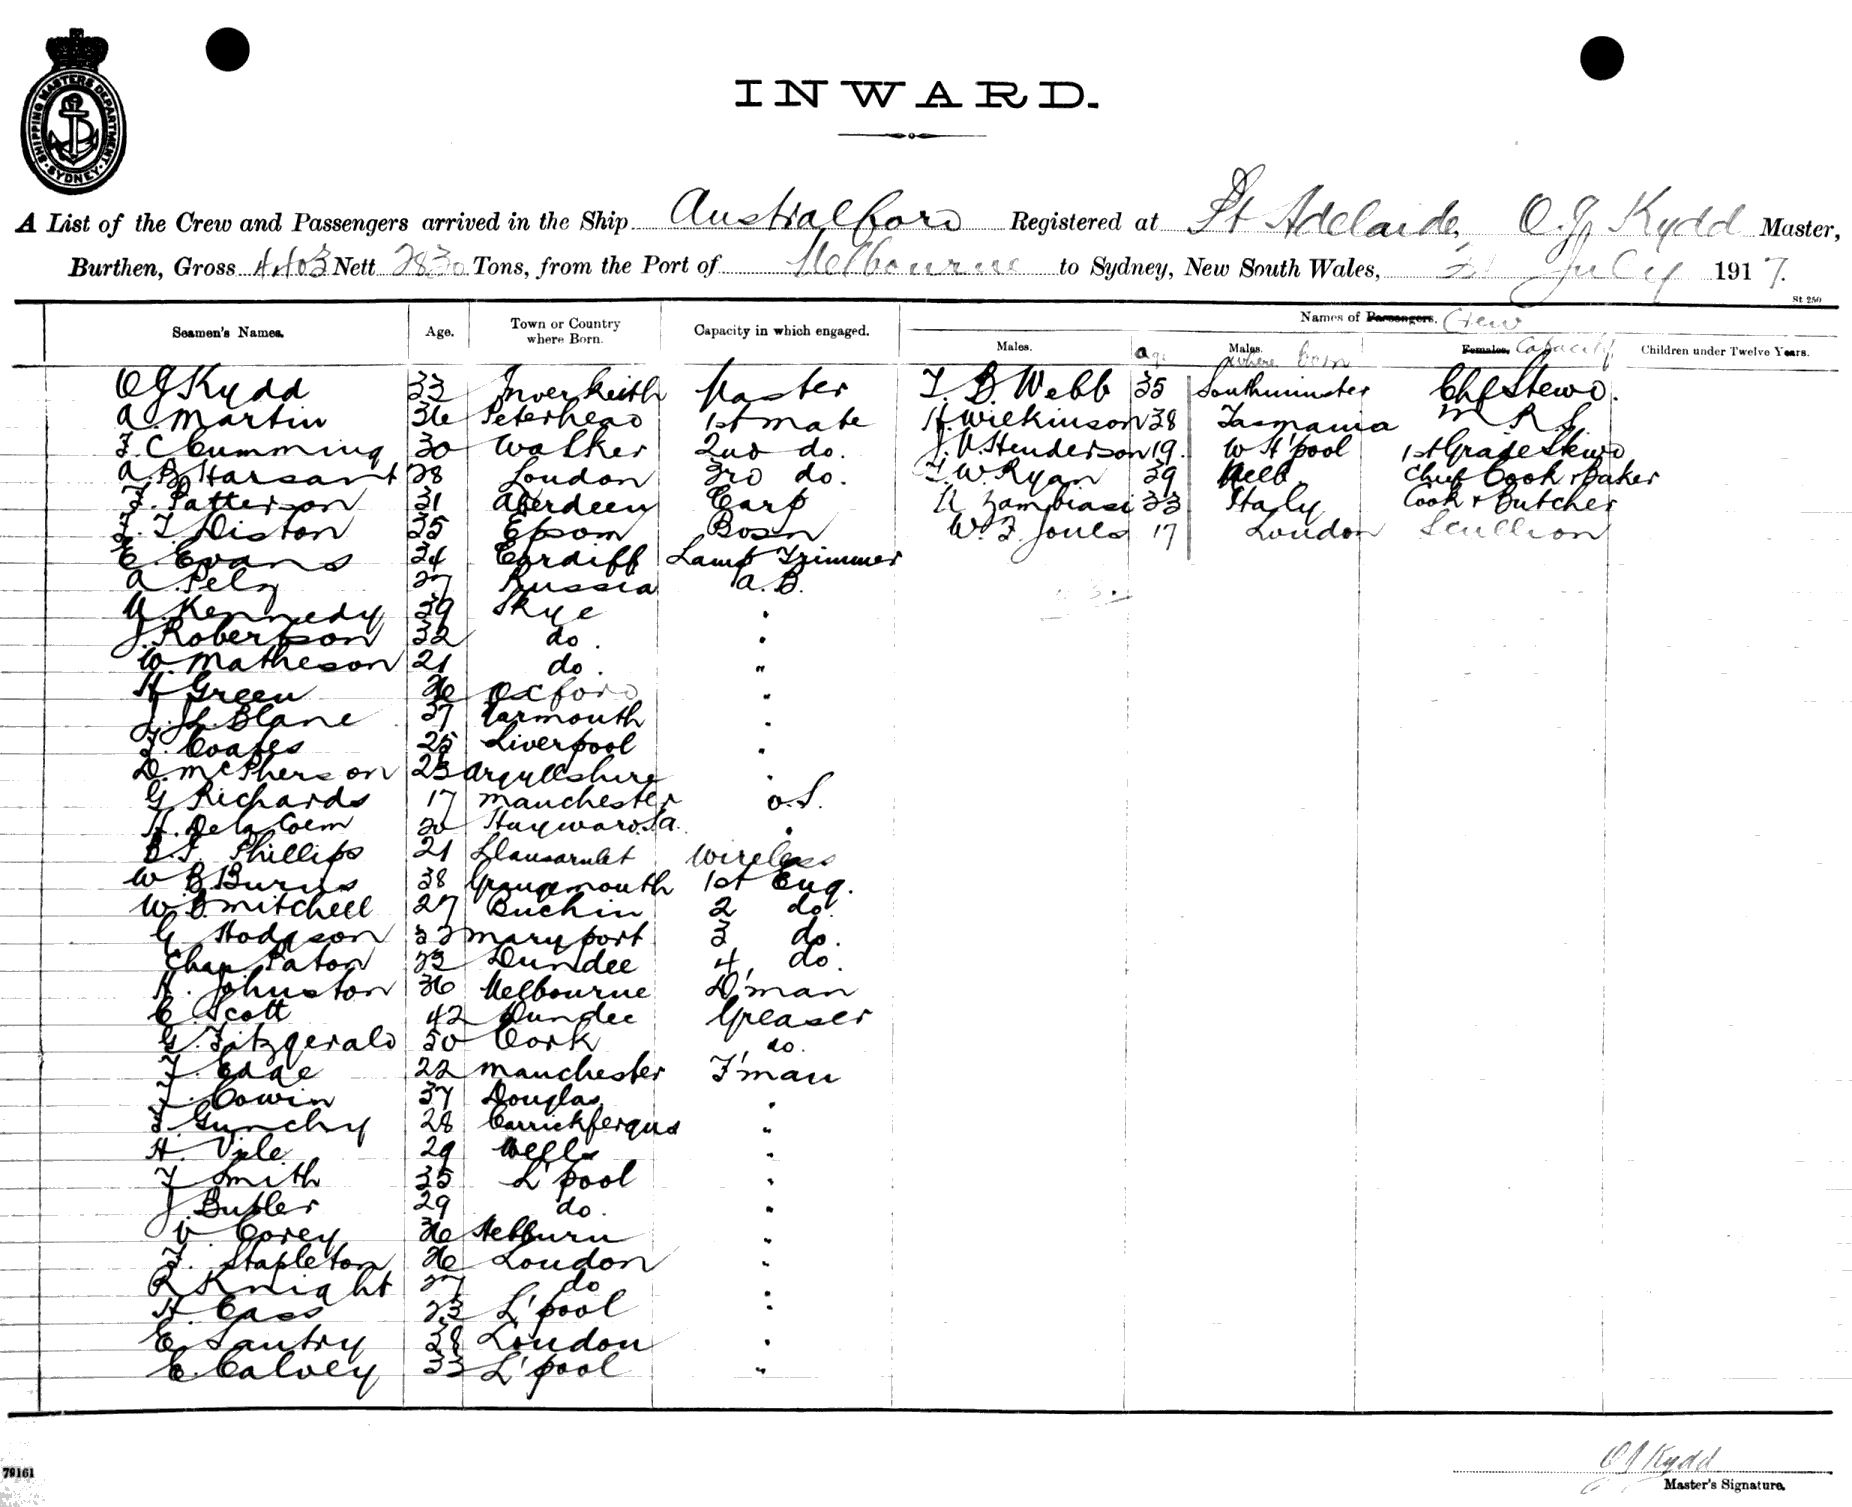 SHIPPING MASTERS DEPARTMENT SYDNEY
INWARD.
A List of the Crew and Passengers arrived in the Ship Australford Registered at Pt Adelaide, O.J. Kydd Master,
Burthen, Gross 4403 Nett 2830 Tons, from the Port of Melbourne to Sydney, New South Wales, July 1917.
St 250
Seamen's Names. Age. Town or Country where Born. Capacity in which engaged. Names of Passengers. Crew
Males. Age Males. where born Females, Capacity Children under Twelve Years.
O J Kydd 33 Inverkeith Master T. B. Webb 35 Southminster Chf Stewd.
A. Martin 36 Peterhead 1st mate H Wilkinson 38 Tasmania M R S
F. C Cumming 30 Walker 2nd do. J. V. Henderson 19. W H'pool 1st Grade Stewd
A. B Harsant 28 London 3rd do. T. W. Ryan 39 Melb Chief Cook & Baker
F. Patterson 31 Aberdeen Carp N Zambiasi 33 Italy Cook & Butcher
F. T Diston 35 Epsom Bosn W. F. Jones 17 London Scullion
E. Evans 34 Cardiff Lamp Trimmer
A. Pelz 27 Russia A. B.
A. Kennedy 39 Skye "
J. Robertson 32 do. "
W. Matheson 21 do. "
H Green 26 Oxford "
J. L. Blane 37 Yarmouth "
F. Coates 25 Liverpool "
D. McPherson 23 Argyllshire "
G Richards 17 Manchester O.S.
H. 20 "
B. T. Phillips 21 Wireless
W B Burns 38 Grangemouth 1st Eng.
W B Mitchell 27 Buchin 2 do.
G Hodgson 33 Maryport 3 do.
Chas. Paton 23 Dundee 4 do.
H. Johnston 36 Melbourne D'man
C. Scott 42 Dundee Greaser
G. Fitzgerald 50 Cork do.
F. Edge 22 Manchester F'man
F. Cowin 37 Douglas "
F. Gunchy 28 Carrickfergus "
H. Vile 29 Wells "
F Smith 35 L'pool "
J. Butler 29 do. "
V Corey 36 Hebburn "
F. Stapleton 26 London "
R Knight 27 do "
H. Cass 23 L'pool "
E. Santry 38 London "
E. Calvey 33 L'pool "
O J Kydd
79161
Master's Signature.